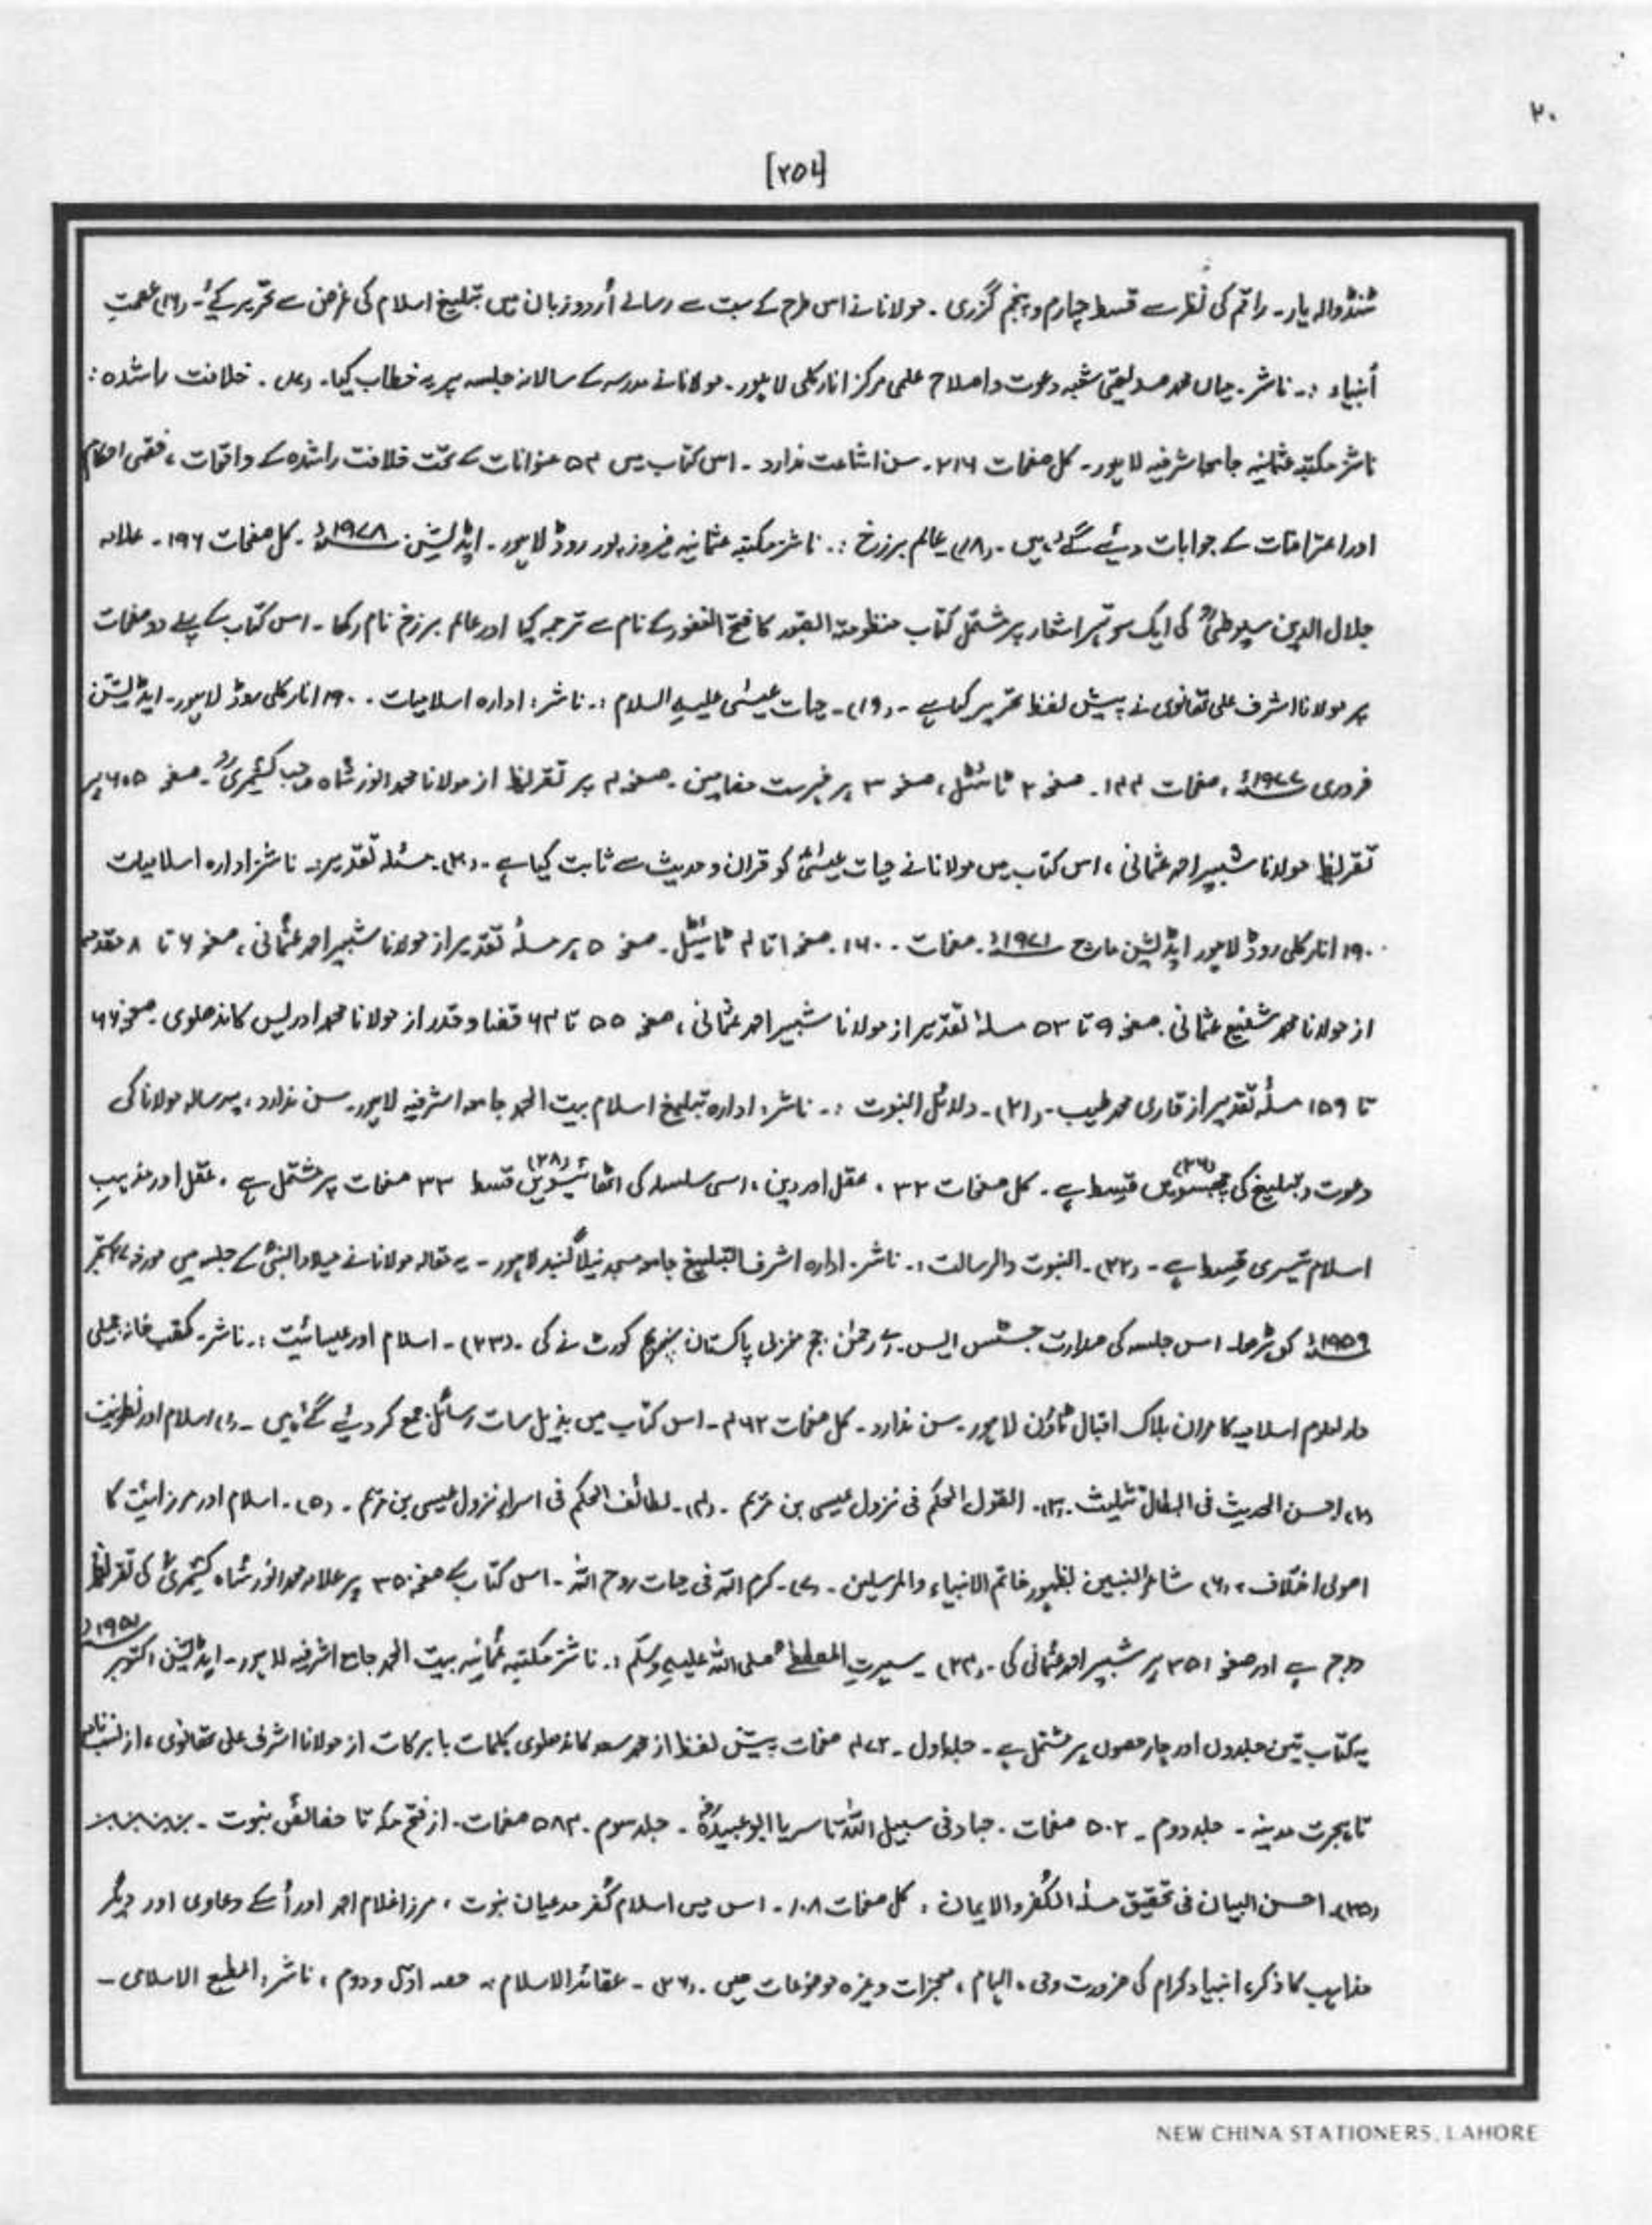 ۲۰
[۲۵۱]
ٹنڈوالہ یار۔ راقم کی نظر سے قسط چہارم و پنجم گزری ۔ مولانا نے اس طرح کے بہت سے رسالے اُردو زبان میں تبلیغ اسلام کی غرض سے تحریر کیے۔ (۱۶) عصمتِ
اَنبیاء :۔ ناشر۔ میاں محمد صدیقی شعبہ دعوت و اصلاح علمی مرکز انارکلی لاہور۔ مولانا نے مدرسہ کے سالانہ جلسہ پر یہ خطاب کیا۔ (۱۷) ۔ خلافت راشدہ :
ناشر مکتبہ عثمانیہ جامعہ اشرفیہ لاہور۔ کل صفحات ۲۱۶۔ سن اشاعت ندارد ۔ اس کتاب میں ۵۴ عنوانات کے تحت خلافت راشدہ کے واقعات ، فقہی احکام
اور اعتراضات کے جوابات دیئے گئے ہیں ۔ (۱۸) عالم برزخ :۔ ناشر مکتبہ عثمانیہ فیروز پور روڈ لاہور ۔ ایڈیشن ۱۹۷۸ء ۔ کل صفحات ۱۹۶ ۔ علامہ
جلال الدین سیوطیؒ کی ایک سو تہتر اشعار پر مشتمل کتاب منظومتہ القبور کا فتح الغفور کے نام سے ترجمہ کیا اور عالم برزخ نام رکھا ۔ اس کتاب کے پہلے دو صفحات
پر مولانا اشرف علی تھانوی نے پیش لفظ تحریر کیا ہے ۔ (۱۹)۔ حیات عیسٰی علیہِ السلام :۔ ناشر : ادارہ اسلامیات ۔ ۱۹۰ انارکلی روڈ لاہور۔ ایڈیشن
فروری ۱۹۷۷ء ، صفحات ۱۴۴۔ صفحہ ۲ ٹائٹل ، صفحہ ۳ پر فہرست مضامین ۔ صفحہ ۴ پر تقریظ از مولانا محمد انور شاہ صاحب کشمیریؒ ۔ صفحہ ۶،۵ پر
تقریظ مولانا شبیر احمد عثمانی ، اس کتاب میں مولانا نے حیات عیسٰیؑ کو قران و حدیث سے ثابت کیا ہے ۔ (۲۰) مسئلہ تقدیر :۔ ناشر ادارہ اسلامیات
۱۹۰ انارکلی روڈ لاہور ایڈیشن مارچ ۱۹۷۱ء ۔ صفحات ۔ ۱۶۰ ۔ صفحہ ۱ تا ۴ ٹائیٹل ۔ صفحہ ۵ پر مسلۂ تقدیر از مولانا شبیر احمد عثمانی ، صفحہ ۶ تا ۸ مقدمہ
از مولانا محمد شفیع عثمانی ۔ صفحہ ۹ تا ۵۳ مسلۂ تقدیر از مولانا شبیر احمد عثمانی ، صفحہ ۵۵ تا ۶۴ قضا و قدر از مولانا محمد ادریس کاندھلوی ۔ صفحہ ۶۶
تا ۱۵۹ مسلۂ تقدیر از قاری محمد طیب ۔ (۲۱)۔ دلائل النبوت :۔ ناشر : ادارہ تبلیغ اسلام بیت الحمد جامعہ اشرفیہ لاہور۔ سن ندارد ، یہ رسالہ مولانا کی
دعوت و تبلیغ کی (۲۶) قسط ہے ۔ کل صفحات ۳۲ ، عقل اور دین ، اسی سلسلہ کی اٹھائیسویں (۲۸) قسط ۳۲ صفحات پر مشتمل ہے ، عقل اور مذہبِ
اسلام تیسری قسط ہے ۔ (۲۲)۔ النبوت والرسالت :۔ ناشر ۔ ادارہ اشرف التبلیغ جامعہ مسجد نیلا گنبد لاہور ۔ یہ مقالہ مولانا نے میلاد النبیؐ کے جلسہ میں مورخہ ستمبر
۱۹۵۹ء کو پڑھا۔ اس جلسہ کی صدارت جسٹس ایس ۔ اے رحمٰن جج مغربی پاکستان سپریم کورٹ نے کی ۔ (۲۳)۔ اسلام اور عیسائیت :۔ ناشر۔ کتب خانہ جمیلی
دارالعلوم اسلامیہ کامران بلاک اقبال ٹاؤن لاہور ۔ سن ندارد ۔ کل صفحات ۴۶۲ ۔ اس کتاب میں بذیل سات رسائل جمع کر دیئے گئے ہیں ۔ (۱) اسلام اور نصرانیت
(۲) احسن الحدیث فی ابطال تثلیث ۔ (۳)۔ القول المحکم فی نزول عیسی بن مریم ۔ (۴)۔ لطائف الحکم فی اسرار نزول عیسی بن مریم ۔ (۵)۔ اسلام اور مرزائیت کا
اصولی اختلاف ، (۶) بشائر النبیین بظہور خاتم الانبیاء والمرسلین ۔ (۷)۔ کرم اللہ فی حیات روح اللہ ۔ اس کتاب کے صفحہ ۳۵۰ پر علامہ محمد انور شاہ کشمیریؒ کی تقریظ
درج ہے اور صفحہ ۳۵۱ پر شبیر احمد عثمانی کی ۔ (۲۴) ۔ سیرتِ المصطفٰے صلی اللہ علیہِ وسلّم :۔ ناشر مکتبہ عثمانیہ بیت الحمد جامع اشرفیہ لاہور ۔ ایڈیشن اکتوبر
یہ کتاب تین جلدوں اور چار حصوں پر مشتمل ہے ۔ جلد اول ۔ ۴۷۲ صفحات پیش لفظ از محمد سعد کاندھلوی بکلمات بابرکات از مولانا اشرف علی تھانوی ، از نسب نامہ
تا ہجرت مدینہ ۔ جلد دوم ۔ ۵۰۲ صفحات ۔ جہاد فی سبیل اللہ تا سریا ابو عبیدہؓ ۔ جلد سوم ۔ ۵۸۴ صفحات ۔ از فتح مکہ تا خصائص نبوت ۔
(۲۵)۔ احسن البیان فی تحقیق مسلۂ الکُفر والایمان : کل صفحات ۱۰۸ ۔ اس میں اسلام کُفر مدعیان نبوت ، مرزا غلام احمد اور اُسکے دعاوی اور دیگر
مذاہب کا ذکر ، انبیاء کرام کی ضرورت وحی ، الہام ، معجزات وغیرہ موضوعات ہیں ۔ (۲۶) ۔ عقائد الاسلام :۔ حصہ اوّل و دوم ، ناشر : المطبع الاسلامی ۔
NEW CHINA STATIONERS, LAHORE